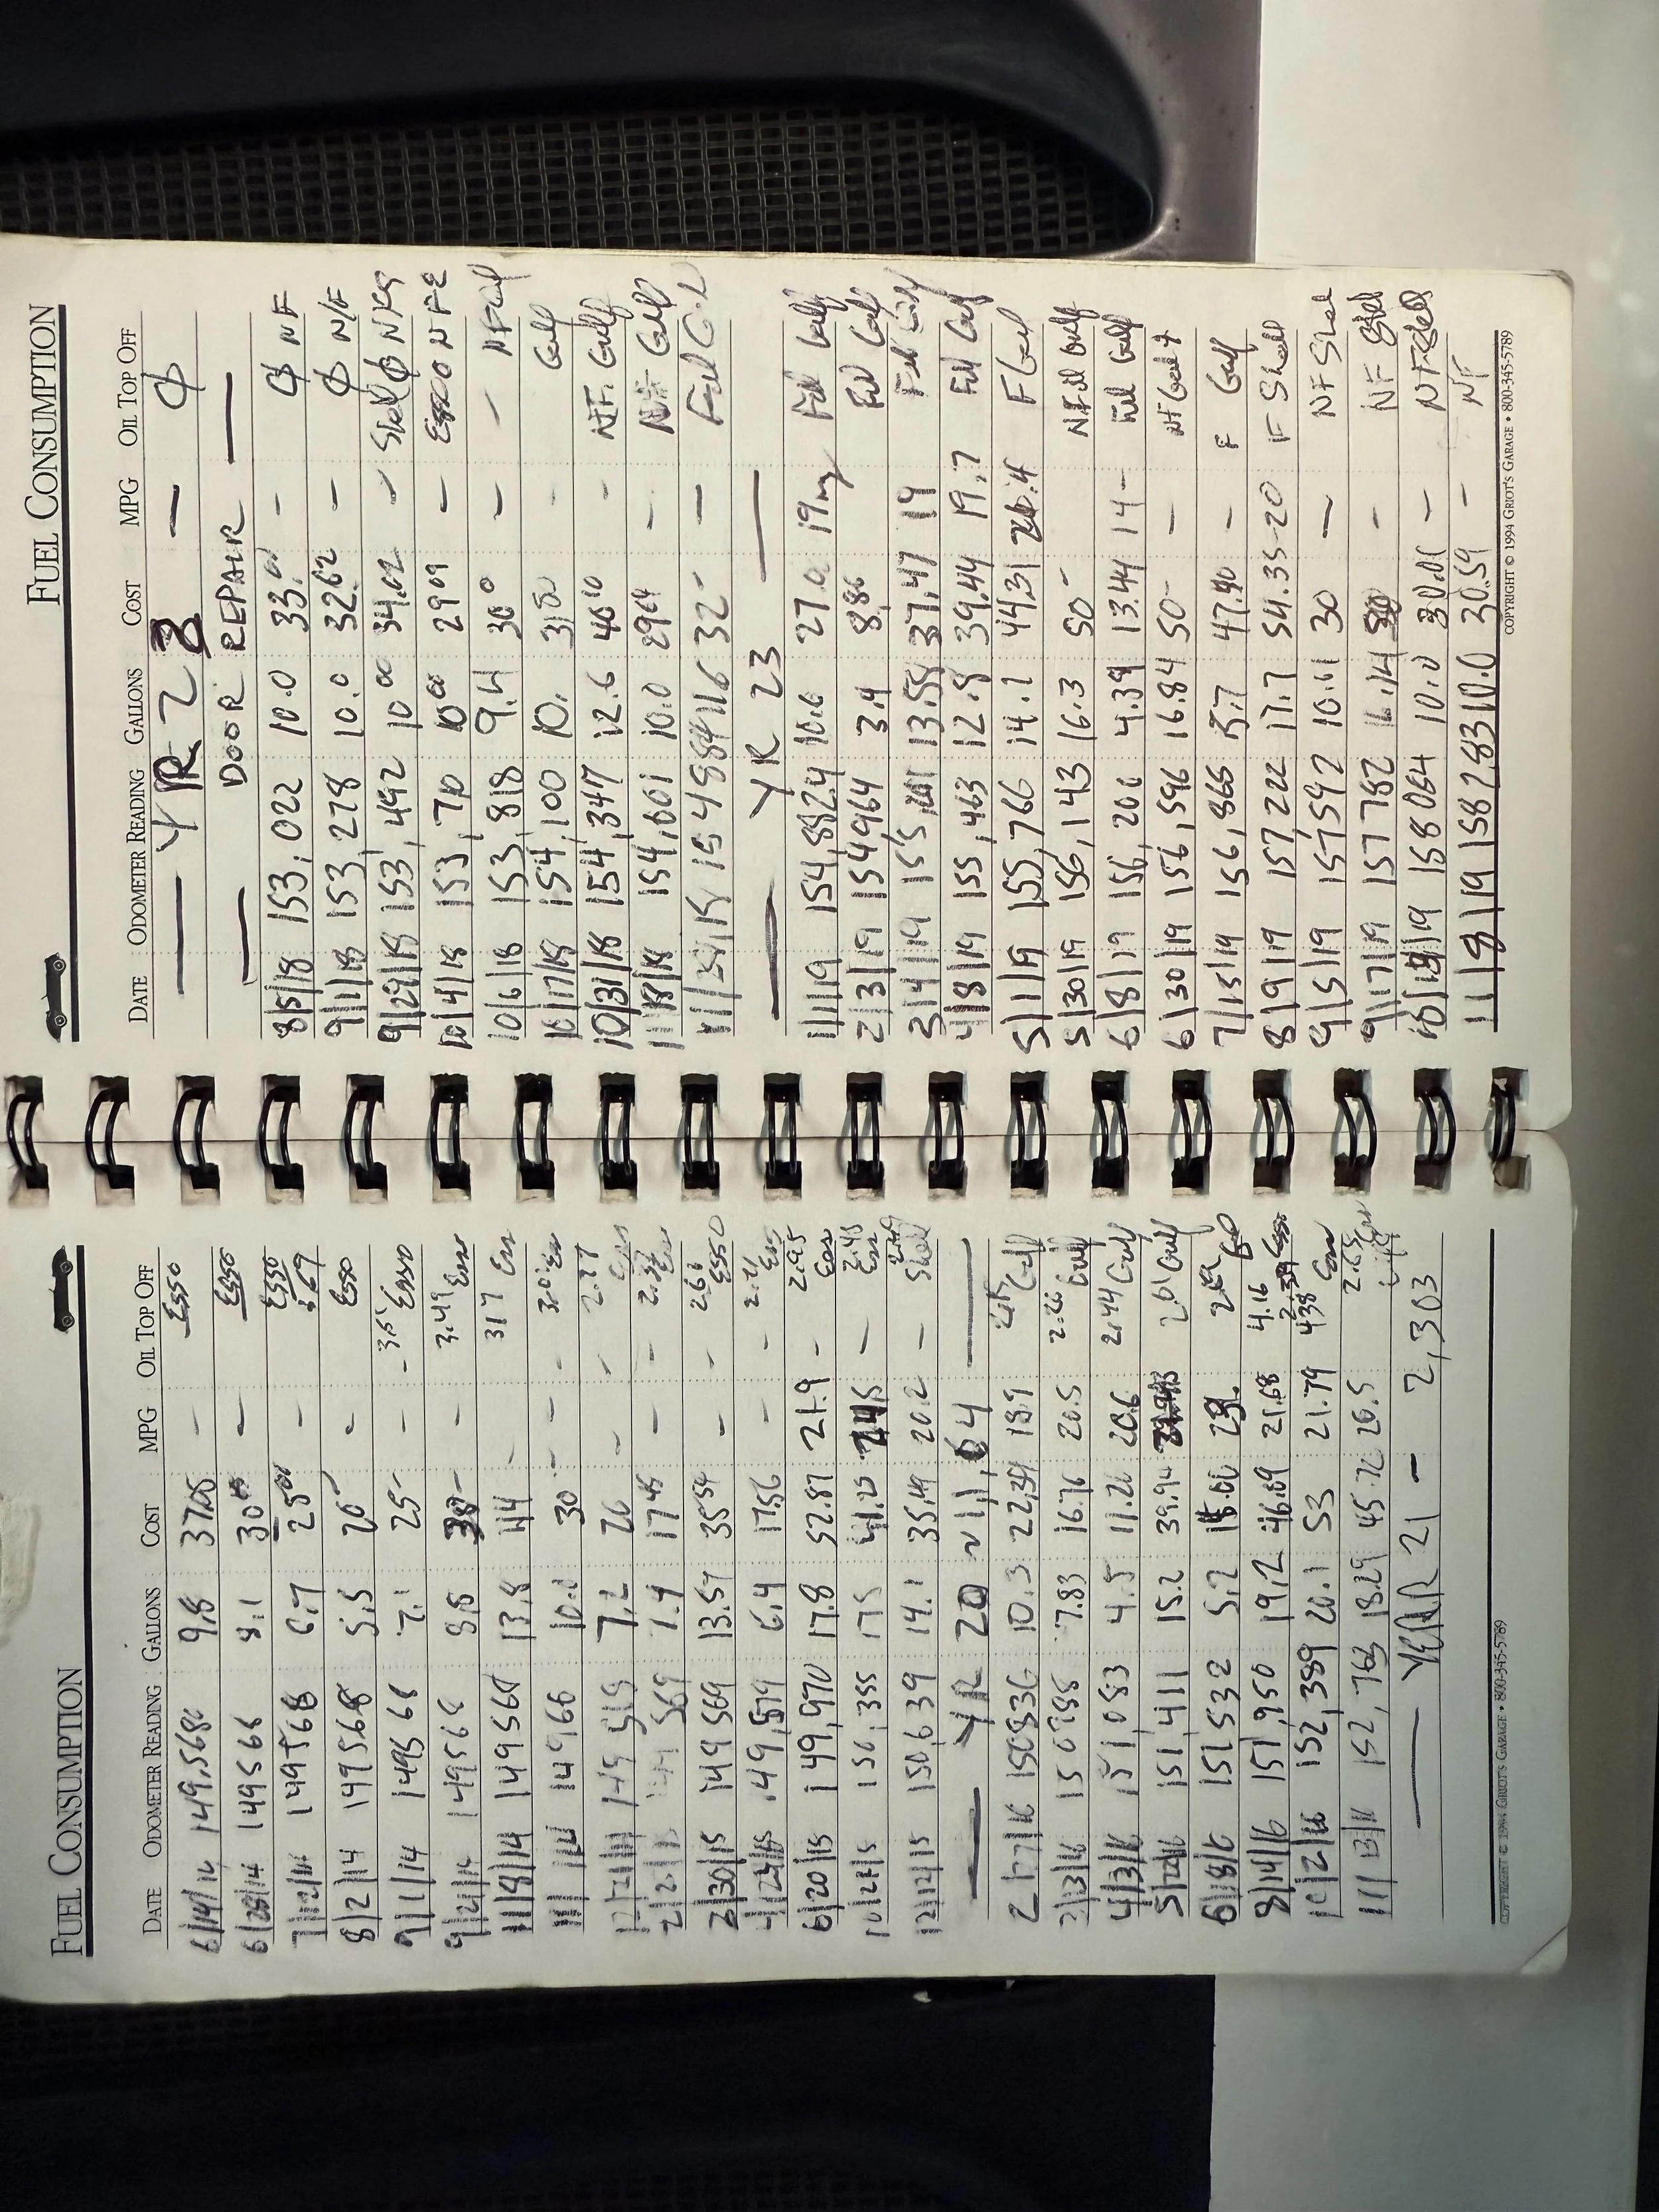 FUEL CONSUMPTION
DATE ODOMETER READING GALLONS COST MPG OIL TOP OFF
6/14/14 149,568 9.8 37.05 - Esso
6/28/14 149568 8.1 30.00 - Esso
7/12/14 149568 6.7 25.00 - Esso 3.69
8/2/14 149568 5.5 20- - Esso
9/1/14 149568 7.1 25- - 3.51 Esso
9/21/14 149568 8.5 30- - 3.49 Esso
11/8/14 149568 13.8 44 - 317 Esso
149568 10.0 30 - 3.01 Esso
7.2 20 - 2.77 Esso
149 569 7.4 17 45 -
3/30/15 149 569 13.57 35 54 - 2.61 ESSO
4/24/15 149,579 6.4 17.56 - 2.71 Esso
6/20/15 149,970 17.8 52.87 21.9 - 2.95 Esso
10/21/15 150,355 17.5 41.25 - 2.45 Esso
12/12/15 150,639 14.1 35.49 20.2 - Shell
YR 20 ~ 11,64
2/17/16 150836 10.3 22.39 18.9 Gulf
3/13/16 150988 7.83 16.76 20.5 2.26 Gulf
4/3/16 151 083 4.5 11.26 20.6 2.44 Gulf
5/22/16 151 411 15.2 39.94 2.61 Gulf
6/18/16 151 532 5.2 15.00 Esso
8/14/16 151,950 19.2 46.09 21.68 4.16 2.39 Esso
10/2/16 152,389 20.1 53 21.79 438 Esso
11/13/16 152,763 18.29 45.72 20.5 2.65
YEAR 21 - 2,303
COPYRIGHT © 1994 GRIOT'S GARAGE • 800-345-5789
FUEL CONSUMPTION
DATE ODOMETER READING GALLONS COST MPG OIL TOP OFF
YR 2 — Ø
DOOR REPAIR
8/5/18 153,022 10.0 33.01 - Ø NF
9/1/18 153,278 10.0 32.62 - Ø N/F
9/29/18 153,492 10.00 34.02 - Shell Ø
10/4/18 153,710 10.00 29 09 - Esso
10/6/18 153,818 9.4 30.0 - - NF Gulf
10/17/18 154,100 10. 31.50 - Gulf
10/31/18 154,347 12.6 40.10 - NF. Gulf
11/18/18 154,601 10.0 29.04 - NF Gulf
154884 11.6 32- - Full Gulf
YR 23
1/1/19 154,882.4 10.6 27.0 19 mg Full Gulf
2/3/19 154964 3.4 8.86 Full Gulf
3/4/19 13.58 37.47 19 Full Gulf
4/8/19 155,463 12.8 39.44 19.7 Full Gulf
5/1/19 155,766 14.1 44.31 20.4 F Gulf
5/30/19 156,143 16.3 50- N Full Gulf
6/8/19 156,200 4.39 13.44 14- Full Gulf
6/30/19 156,596 16.84 50- - NF Gulf
7/15/19 156,866 47.40 - F Gulf
8/9/19 157 222 17.7 54.35-20 F Shell
9/5/19 157,592 10.61 30 - NF Shell
9/17/19 157 782 16.14 50 - NF Shell
158 064 10.0 30.01 - NF Shell
11/8/19 158 283 10.0 30.59 - NF
COPYRIGHT © 1994 GRIOT'S GARAGE • 800-345-5789